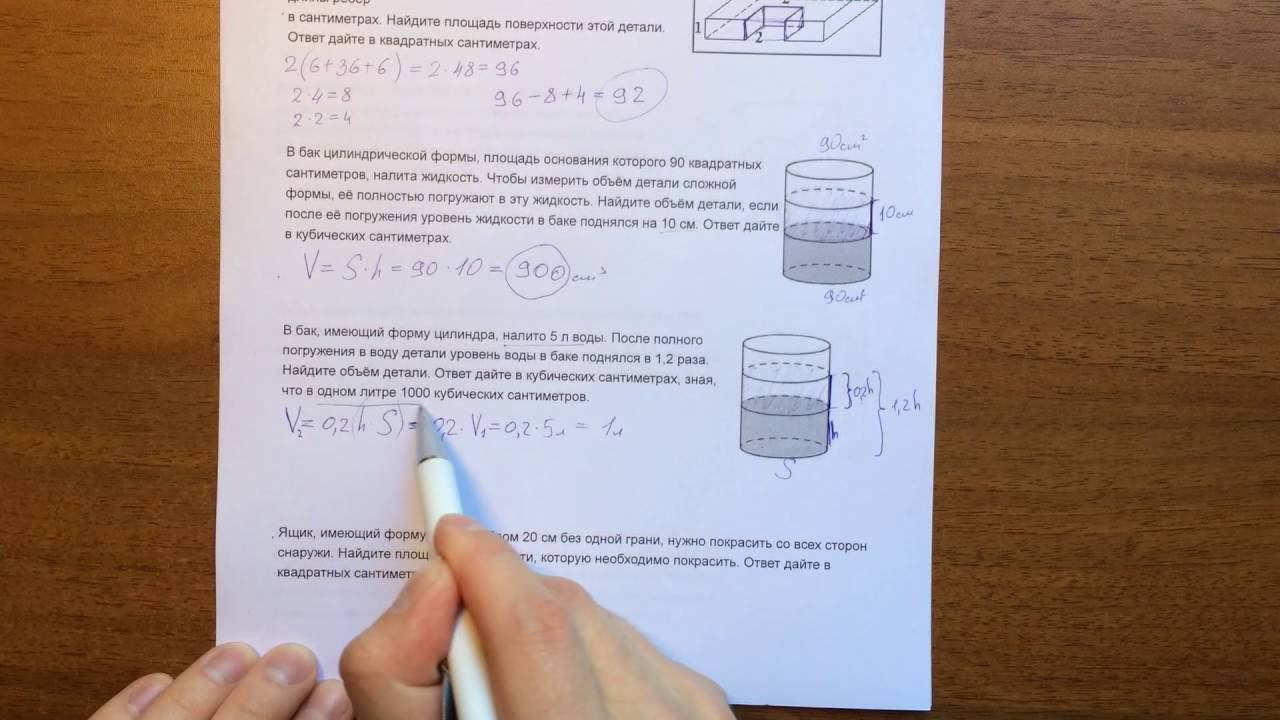 длины ребер
в сантиметрах. Найдите площадь поверхности этой детали.
Ответ дайте в квадратных сантиметрах.
1
2
2
2(6+36+6) = 2·48 = 96
2·4=8
96-8+4 = 92
2·2=4
В бак цилиндрической формы, площадь основания которого 90 квадратных
сантиметров, налита жидкость. Чтобы измерить объём детали сложной
формы, её полностью погружают в эту жидкость. Найдите объём детали, если
после её погружения уровень жидкости в баке поднялся на 10 см. Ответ дайте
в кубических сантиметрах.
90см²
10см
90см²
V = S·h = 90·10 = 900 см³
В бак, имеющий форму цилиндра, налито 5 л воды. После полного
погружения в воду детали уровень воды в баке поднялся в 1,2 раза.
Найдите объём детали. Ответ дайте в кубических сантиметрах, зная,
что в одном литре 1000 кубических сантиметров.
0,2h
1,2h
h
S
V₂ = 0,2(h S) = 0,2· V₁ = 0,2·5л = 1л
Ящик, имеющий форму 20 см без одной грани, нужно покрасить со всех сторон
снаружи. Найдите которую необходимо покрасить. Ответ дайте в
квадратных